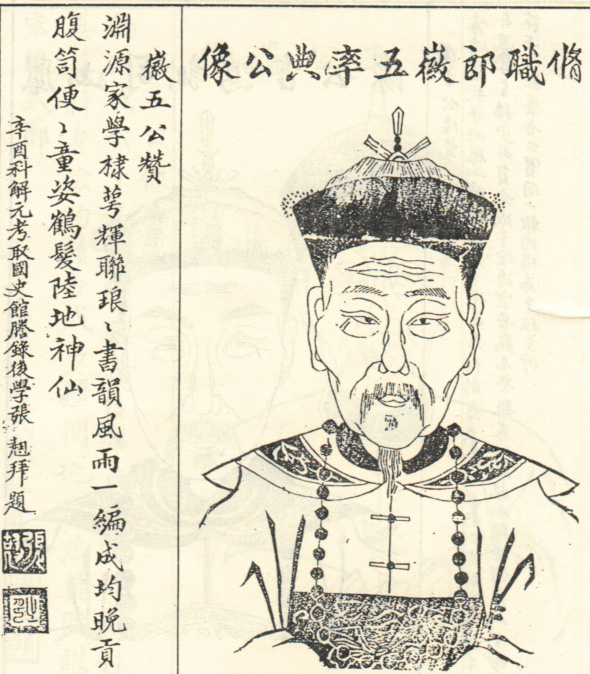 脩職郎徽五率典公像
徽五公贊
淵源家學棣萼輝聯琅〻書韻風雨一編成均晚貢
腹笥便〻童姿鶴髮陸地神仙
辛酉科解元考取國史館謄錄後學張翹拜題